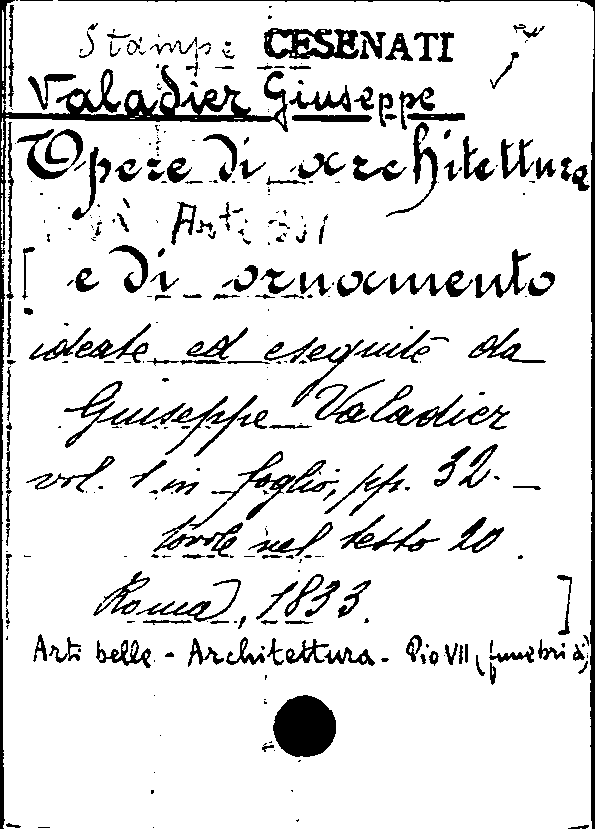 Stampe CESENATI
Valadier Giuseppe
Opere di architettura
Arti
[ e di ornamento
ideate ed eseguite da
Giuseppe Valadier
vol. 1 in foglio, pp. 32. -
tavole nel testo 20.
Roma, 1833. ]
Arti belle - Architettura - Pio VII (funebri a)